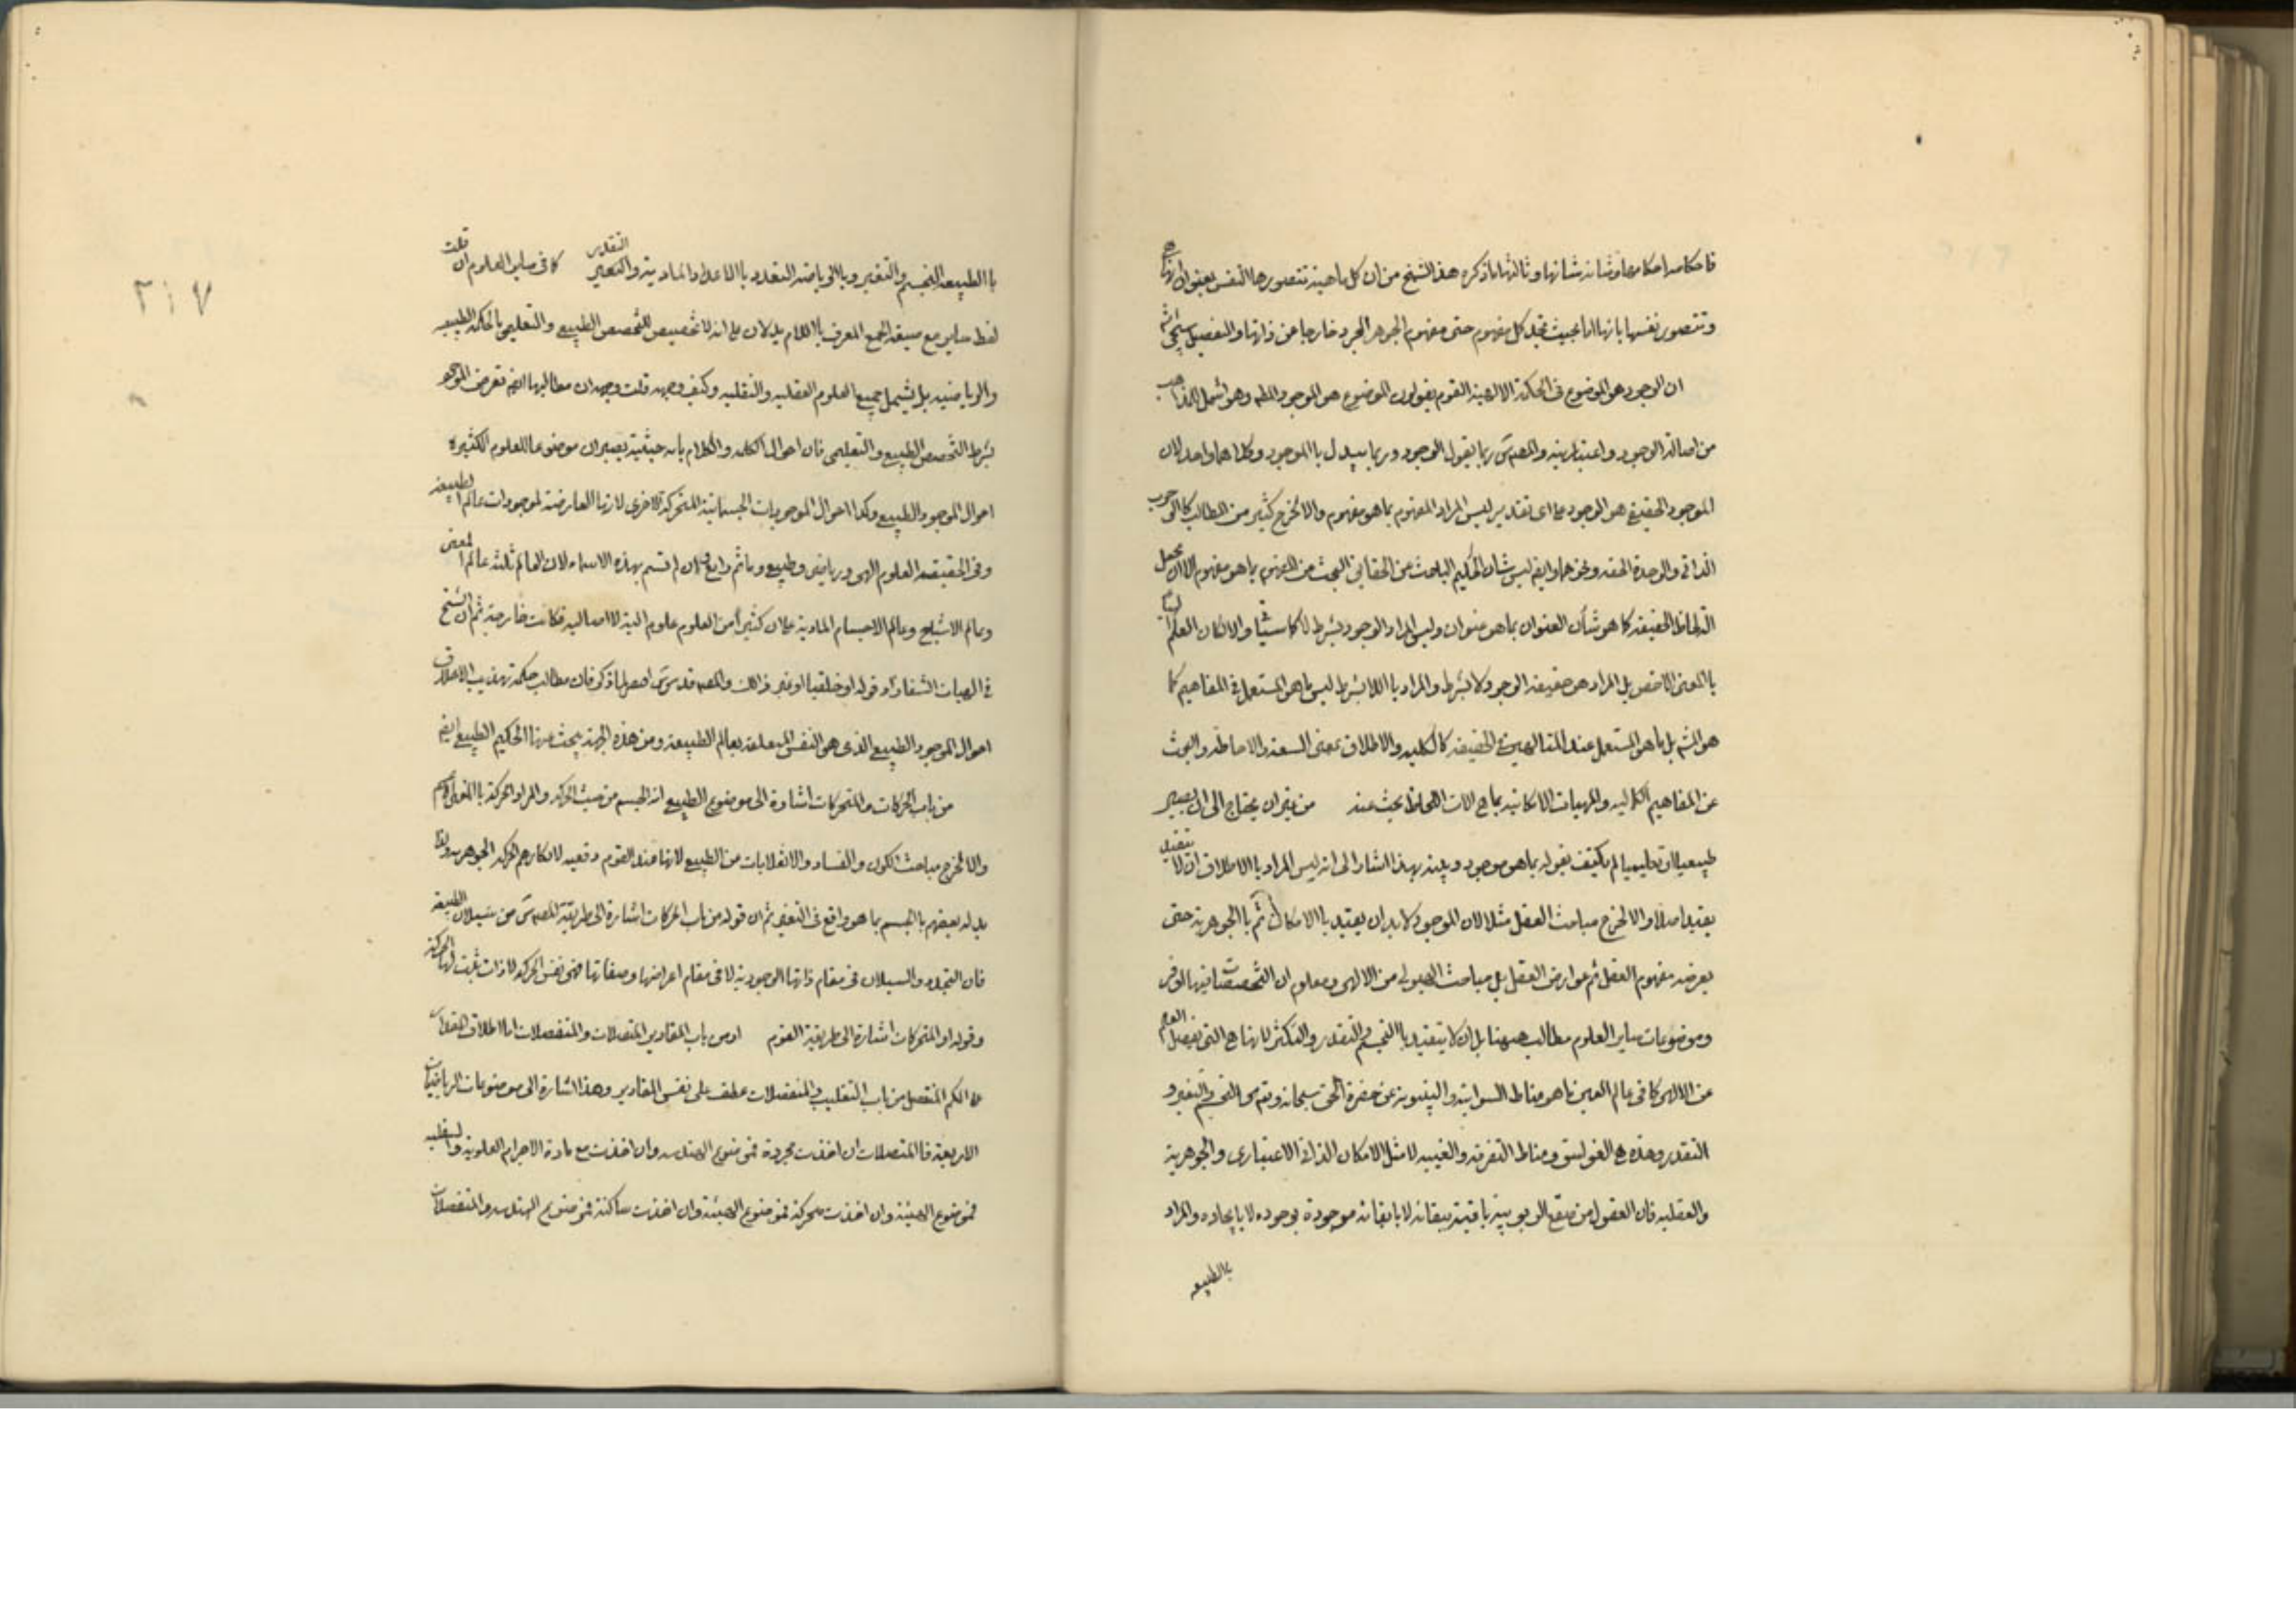 فاحكامه احكامها وشانه شانها وثالثها ما ذكره هذا الشيخ من ان كل ماهية تتصورها النفس بعنوان انها هي
وتتصور نفسها بانها انا بحيث تجد كل مفهوم حتى مفهوم الجوهر المجرد خارجا من ذاتها والتفصيل سيجئ
ان الوجود هو الموضوع في الحكمة الالهية القوم يقولون الموضوع هو الموجود المطلق وهو اشمل للمذاهب
من اصالة الوجود واعتباريته والمصنف س ربما يقول الوجود وربما يبدل بالموجود وكلاهما واحد لان
الموجود الحقيقي هو الوجود على اى تقدير ليس المراد المفهوم بما هو مفهوم والا لخرج كثير من المطالب كالوجوب
الذاتي والوحدة الحقة ونحوهما وايضا ليس شان الحكيم الباحث عن الحقايق البحث من المفهوم بما هو مفهوم الا ان يجعل
آلة لحاظ الحقيقة كما هو شأن العنوان بما هو عنوان وليس المراد الوجود بشرط لا كما سيأتي والا لكان العلم
بالمعنى الاخص بل المراد هو حقيقة الوجود لا بشرط والمراد باللا بشرط ليس ما هو المستعمل في المفاهيم كما
هو الشهر بل ما هو المستعمل عند المتالهين في الحقيقة كالكلية والاطلاق بمعنى السعة والاحاطة والبحث
عن المفاهيم الكلية والمهيات الامكانية بما هي آلات اللحاظ بحث عنه من غير ان يحتاج الى ان يصير
طبيعيا او تعليميا لم يكتف بقوله بما هو موجود وبينه بهذا اشارة الى انه ليس المراد بالاطلاق ان لا يتقيد
بقيد اصلا والا لخرج مباحث العقل مثلا لان الموجود لابد ان يقيد بالامكان ثم بالجوهرية حتى
يعرضه مفهوم العقل ثم عوارض العقل بل مباحث الهيولى من الالهى ومعلوم ان التخصصات انيها لوض
وموضوعات ساير العلوم مطالب ههنا بل ان لا يتقيد بالتجسم والتقدر والتكثر لانها هي التي تفصل العلم
عن الالهى كما في عالم العين ما هو مناط السوائية والبينونة عن حضرة الحق سبحانه وتعالى هو التجسم والتغير و
التقدر وهذه هي الغواسق ومناط التفرقة والغيبة لا مثل الامكان الذاتي الاعتبارى والجوهرية
والعقلية فان العقول من صقع الربوبية باقية ببقائه لا بابقائه موجودة بوجوده لا بايجاده والمراد
بالطبيعة
٢١٧
بالطبيعة التجسم والتغير وبالرياضة التقدر بالاعداد المادية والتعبير التقدير كما في ساير العلوم ان قلت
لفظ ساير مع صيغة الجمع المعرف باللام يدلان على انه لا تخصيص للتخصص الطبيعي والتعليمي بالحكمة الطبيعية
والرياضية بل يشمل جميع العلوم العقلية والنقلية وكيف وجهه قلت وجهه ان مطالبها ايضا تعرض الموجود
بشرط التخصص الطبيعي والتعليمي فان احوال الكلمة والكلام باية حيثية يصيران موضوعا للعلوم الكثيرة
احوال الموجود الطبيعي وكذا احوال الموجودات الجسمانية المتحركة الاخرى لانها العارضة لموجودات عالم الطبيعة
وفي الحقيقة العلوم الهى ورياضى وطبيعي وما ثم رابع وان لم تسم بهذه الاسماء لان العالم ثلثة عالم المعنى
وعالم الاشباح وعالم الاجسام المادية على ان كثيرا من العلوم علوم الية لا اصالية فكانت خارجة ثم ان الشيخ
في الهيات الشفا زاد قوله او خلقيا او غير ذلك والمصنف قدس س اهملها ذكر فان مطالب حكمة تهذيب الاخلاق
احوال الموجود الطبيعي الذى هو النفس المتعلقة بعالم الطبيعة ومن هذه الجهة يبحث عنها الحكيم الطبيعي ايضا
من باب الحركات والمتحركات اشارة الى موضوع الطبيعي انه الجسم من حيث الحركة والمراد الحركة بالمعنى الاعم
والا لخرج مباحث الكون والفساد والانقلابات من الطبيعي لانها عند القوم دفعية لانكارهم الحركة الجوهرية ولذا
بدله بعضهم بالجسم بما هو واقع في التغير ثم ان قوله من باب الحركات اشارة الى طريقة المصنف س من سيلان الطبيعة
فان التجدد والسيلان في مقام ذاتها الوجودية لا في مقام اعراضها وصفاتها فهي نفس الحركة لا ذات ثبت لها الحركة
وقوله او المتحركات اشارة الى طريقة القوم او من باب المقادير المتصلات والمنفصلات اما اطلاق المقدار
على الكم المنفصل من باب التغليب والمنفصلات عطف على نفس المقادير وهذا اشارة الى موضوعات الرياضيات
الاربعة فالمتصلات ان اخذت مجردة فموضوع الهندسة وان اخذت مع مادة الاجرام العلوية والسفلية
فموضوع الهيئة وان اخذت متحركة فموضوع الهيئة وان اخذت ساكنة فموضوع الهندسة والمنفصلات